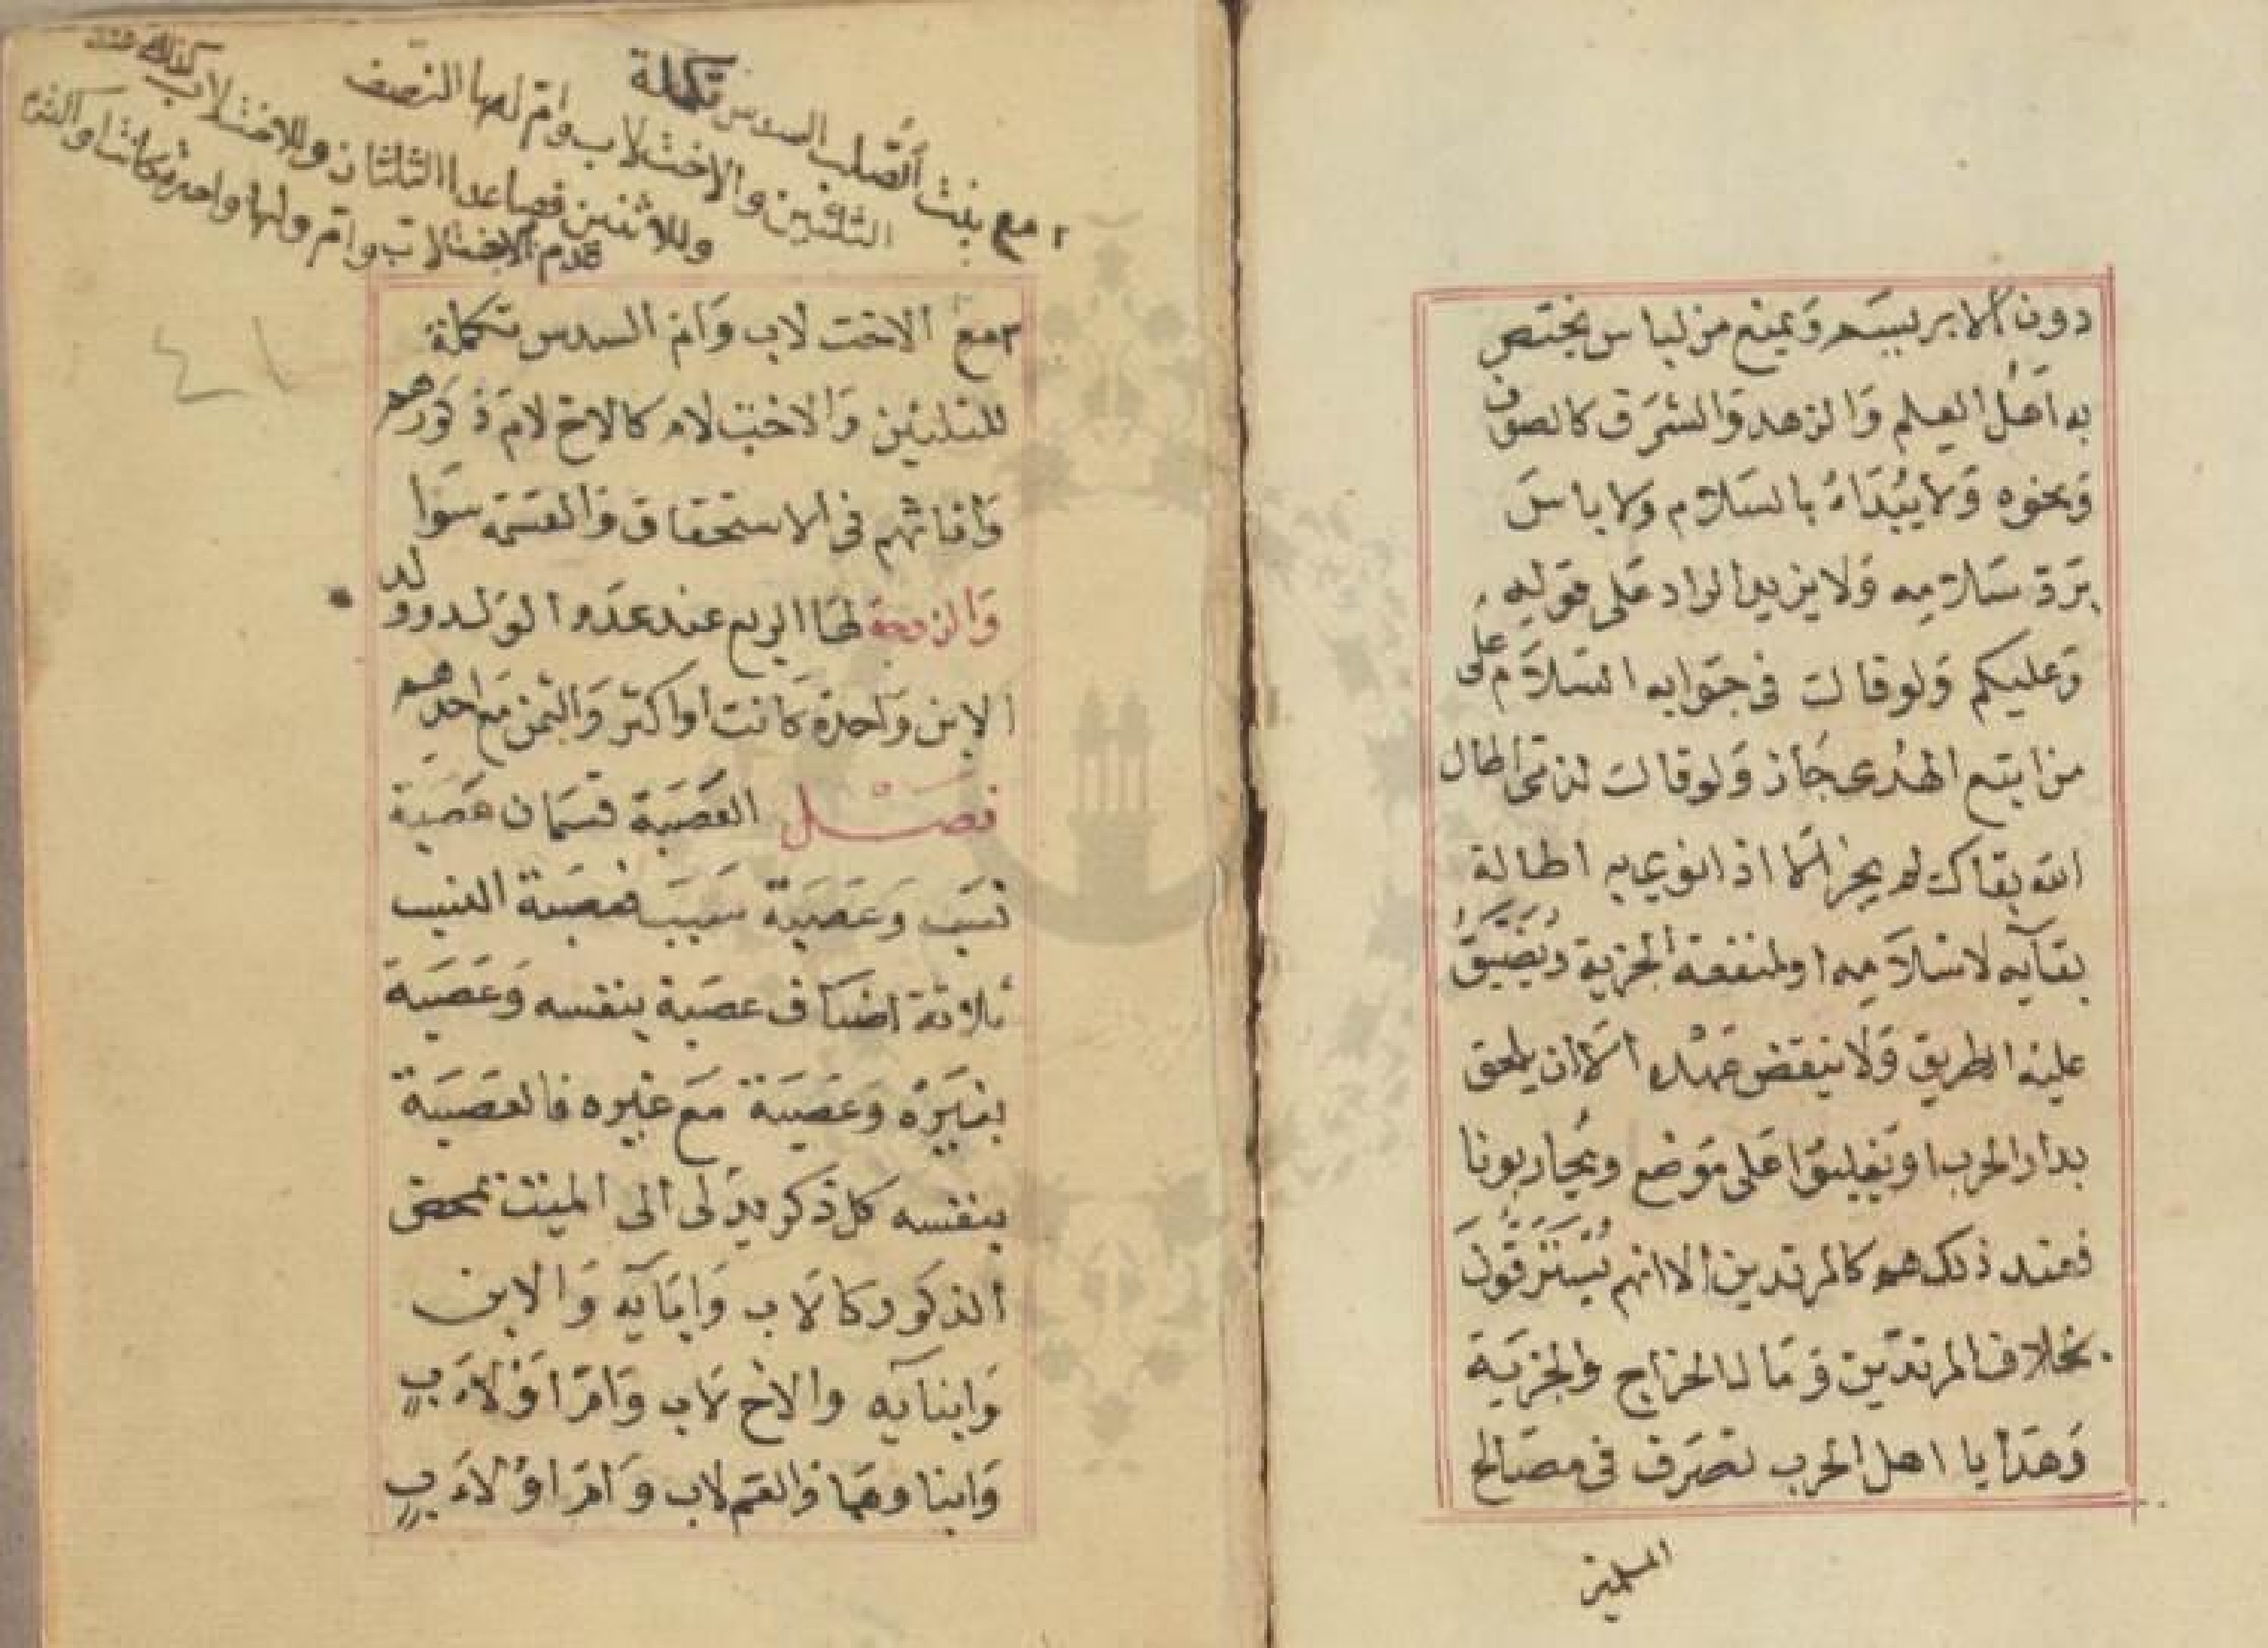 دون الابريسم ويمنع من لباس يختص
به اهل العلم والزهد والشرف كالصوف
ونحوه ولا يبداء بالسلام ولا باس
برد سلامه ولا يزيد الراد على قوله
وعليكم ولو قال في جوابه السلام على
من اتبع الهدى جاز ولو قال لذمى اطال
الله بقاك لم يجز الا اذا نوي به اطالة
بقايه لاسلامه او لمنفعة الجزية ويضيق
عليه الطريق ولا ينقض عهده الا ان يلحق
بدار الحرب او يغلبوا على موضع ويحاربونا
فعند ذلك هم كالمرتدين الا انهم يسترقون
بخلاف المرتدين ومال الخراج والجزية
وهدايا اهل الحرب تصرف فى مصالح
المسلمين
مع بنت الصلب السدس تكملة
الثلثين والاخت لاب وام لها النصف
وللاثنين فصاعدا الثلثان وللاخت لاب كذلك عند
عدم الاخت لاب وام ولها واحدة كانت او اكثر
مع الاخت لاب وام السدس تكملة
للثلثين والاخت لام كالاخ لام ذكورهم
واناثهم فى الاستحقاق والقسمة سوا
والزوجة لها الربع عند عدم الولد وولد
الابن واحدة كانت او اكثر والثمن مع احدهم
فصل العصبة قسمان عصبة
نسب وعصبة سبب فعصبة النسب
ثلاثة اصناف عصبة بنفسه وعصبة
بغيره وعصبة مع غيره فالعصبة
بنفسه كل ذكر يدلى الى الميت بمحض
الذكور كالاب وابايه والابن
وابنايه والاخ لاب وام او لاب
وابناوهما والعم لاب وام او لاب